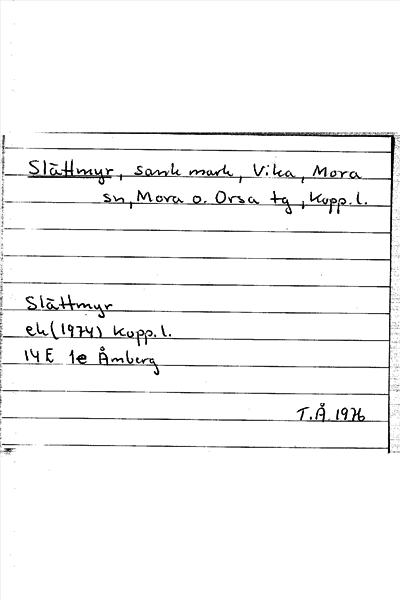 Slättmyr, sank mark, Vika, Mora
sn, Mora o. Orsa tg, Kopp.l.
Slättmyr
ek (1974) Kopp.l.
14 E 1e Åmberg
T.Å. 1976